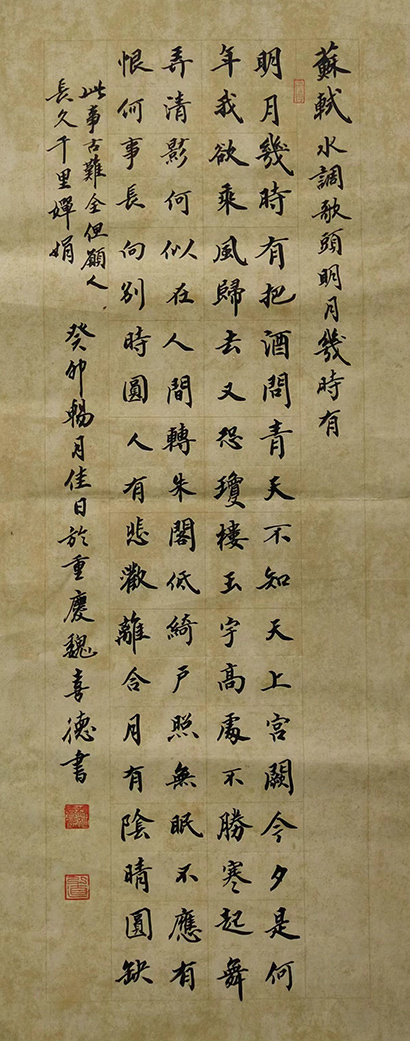 蘇軾水調歌頭明月幾時有
明月幾時有把酒問青天不知天上宮闕今夕是何
年我欲乘風歸去又恐瓊樓玉宇高處不勝寒起舞
弄清影何似在人間轉朱閣低綺戶照無眠不應有
恨何事長向別時圓人有悲歡離合月有陰晴圓缺
此事古難全但願人
長久千里嬋娟
癸卯暢月佳日於重慶魏喜德書